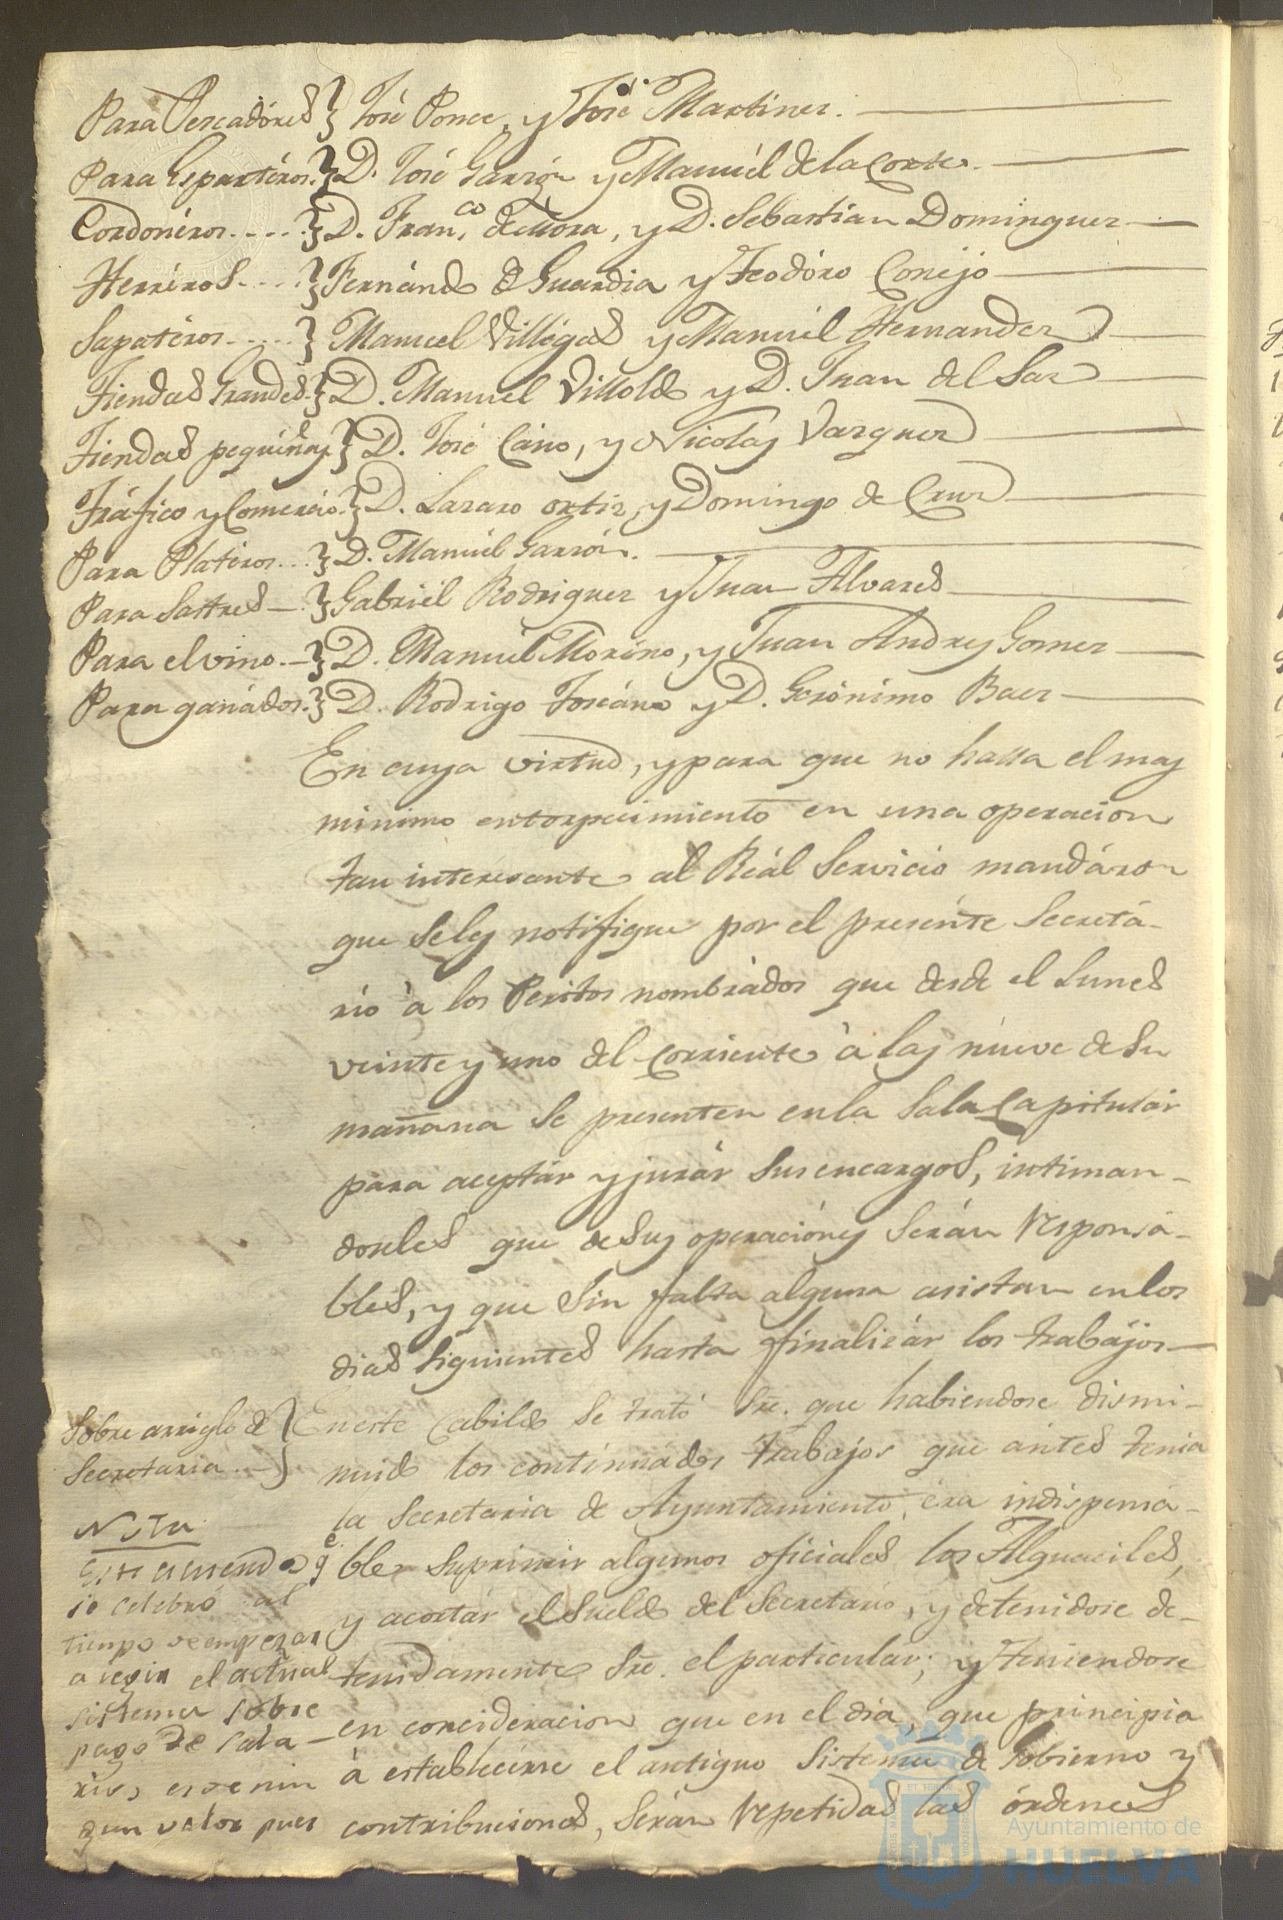 Para Pescadóres } José Ponce, y José Martinez.
Para Espartéros. } D. José Garzón y Manuél de la Corte.
Cordonéros. } D. Fran.co de Mora, y D. Sebastian Dominguez
Herréros } Fernándo de Guardia y Teodóro Conejo
Sapatéros } Manuel Villégas y Manuél Hernandez
Tiendas Grandes. } D. Manuel Villoldo y D. Juan del Saz
Tiendas pequeñas } D. José Cano, y Nicolas Vazquez
Tráfico y Comercio. } D. Lazaro ortiz, y Domingo de Cruz
Para Platéros } D. Manuél Garzón.
Para Sastres } Gabriél Rodriguez y Juan Alvares
Para el vino. } D. Manuél Moréno, y Juan Andres Gomez
Para ganádos. } D. Rodrigo Toscáno y D. Gerónimo Baez
En cuya virtud, y para que no halla el mas
minimo entorpecimiento en una operacion
tan interesante al Reál Servicio mandáron
que se les notifique por el presénte Secretá-
rio à los Peritos nombrádos que desde el Lunes
veinte y uno del corriente à las nueve de su
mañana se presenten en la Sala Capitulár
para aceptár y jurár sus encargos, intiman-
doseles que de sus operaciónes serán responsa-
bles, y que sin falta alguna asistan en los
dias siguientes hasta finalizár los trabájos
Sobre arréglo de
Secretaria
En este Cabildo se trató Sre. que habiendose dismi-
nuido los continuádos trabajos que ántes tenia
la Secretaria de Ayuntamiento, éra indispensa-
ble suprimir algunos oficiales, los Alguaciles,
y acortár el sueldo del Secretario, y detenidose de-
tenidamente Sre. el particular; y teniendose
en concideracion que en el dia, que principia
à establecerse el antiguo Sistema de Gobierno y
contribuciones, serán repetidas las órdenes
Nota
Este acuerdo q.e
se celebró al
tiempo de empezar
a regir el actual
sistema sobre
pago de sala-
rios, es de nin
gun valor pues
Ayuntamiento de
HUELVA